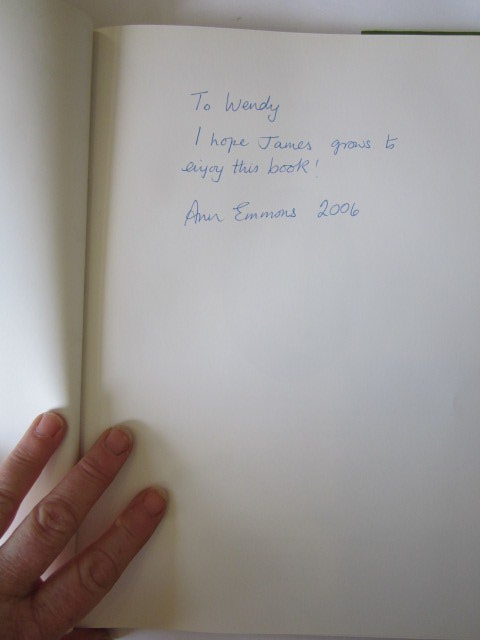 To Wendy
I hope James grows to
enjoy this book!
Ann Emmons 2006